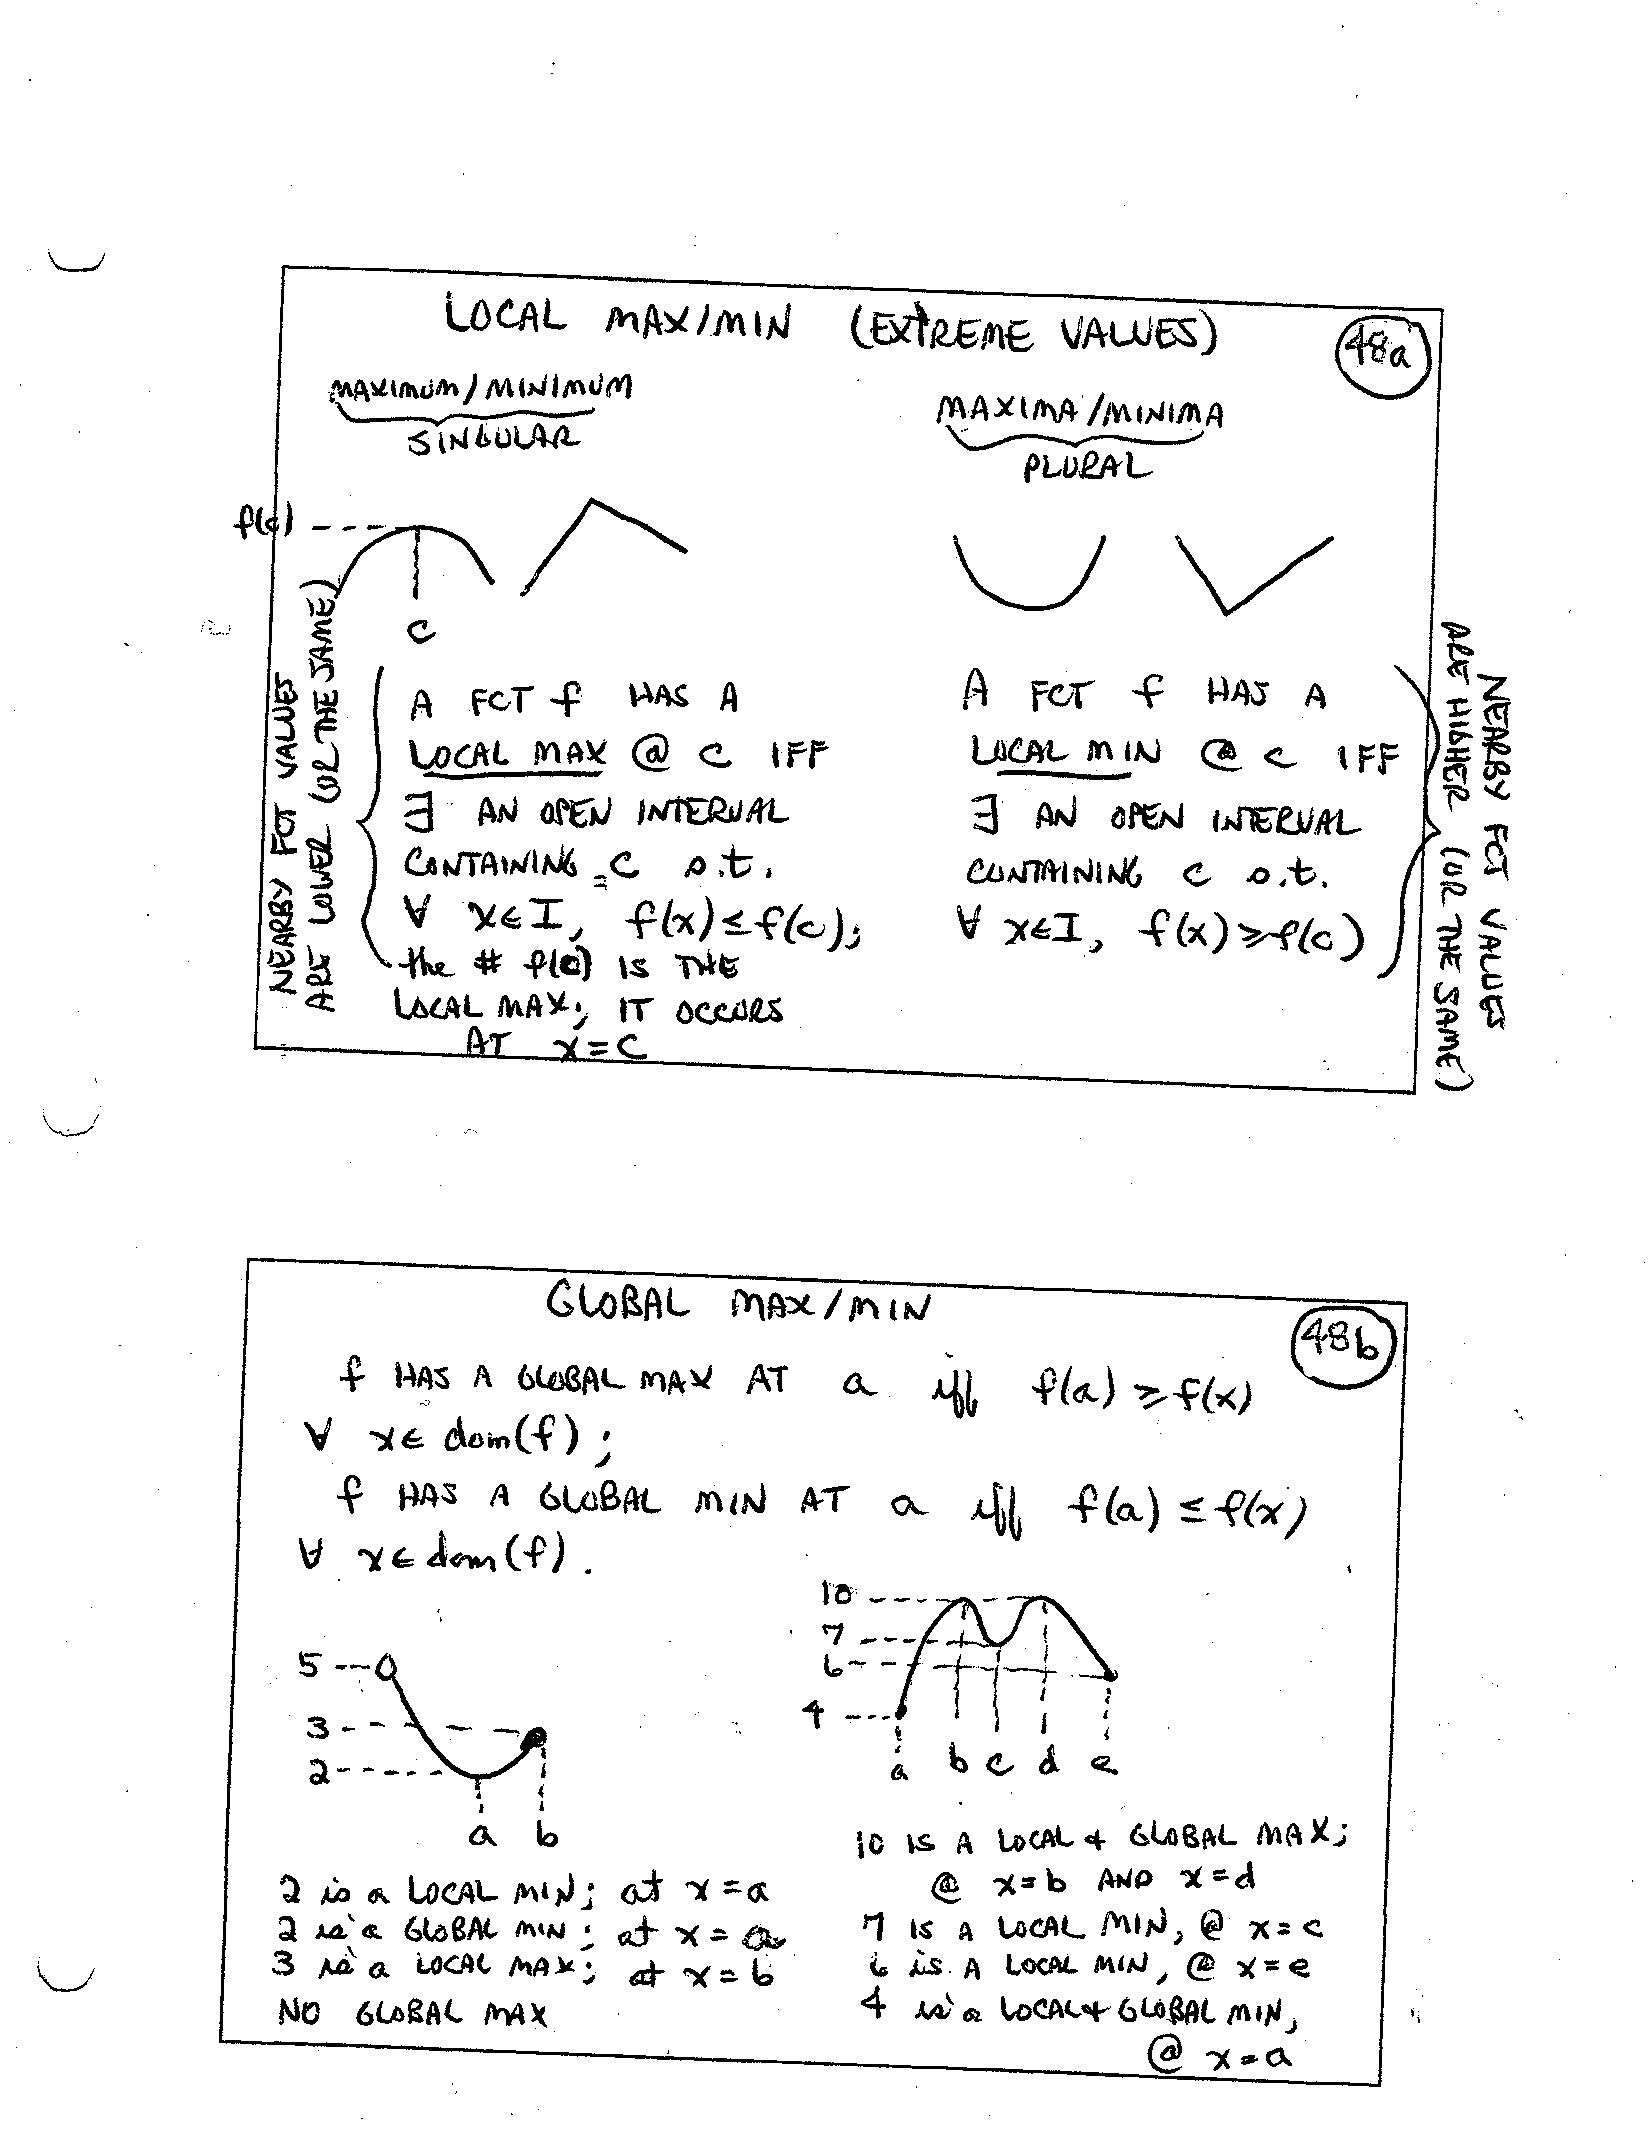 LOCAL MAX/MIN (EXTREME VALUES)
48a
MAXIMUM/MINIMUM
SINGULAR
MAXIMA/MINIMA
PLURAL
f(c)
c
NEARBY FCT VALUES
ARE LOWER (OR THE SAME)
A FCT f HAS A
LOCAL MAX @ c IFF
∃ AN OPEN INTERVAL
CONTAINING c s.t.
∀ x∈I, f(x)≤f(c);
the # f(c) IS THE
LOCAL MAX; IT OCCURS
AT x=c
A FCT f HAS A
LOCAL MIN @ c IFF
∃ AN OPEN INTERVAL
CONTAINING c s.t.
∀ x∈I, f(x)≥f(c)
NEARBY FCT VALUES
ARE HIGHER (OR THE SAME)
GLOBAL MAX/MIN
48b
f HAS A GLOBAL MAX AT a iff f(a)≥f(x)
∀ x∈dom(f);
f HAS A GLOBAL MIN AT a iff f(a)≤f(x)
∀ x∈dom(f).
5
3
2
a b
2 is a LOCAL MIN; at x=a
2 is a GLOBAL MIN; at x=a
3 is a LOCAL MAX; at x=b
NO GLOBAL MAX
10
7
6
4
a b c d e
10 IS A LOCAL & GLOBAL MAX;
@ x=b AND x=d
7 IS A LOCAL MIN, @ x=c
6 is A LOCAL MIN, @ x=e
4 is a LOCAL & GLOBAL MIN,
@ x=a